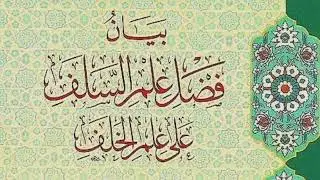 بَيَانُ
فَضْلِ عِلْمِ السَّلَفِ
عَلَى عِلْمِ الخَلَفِ